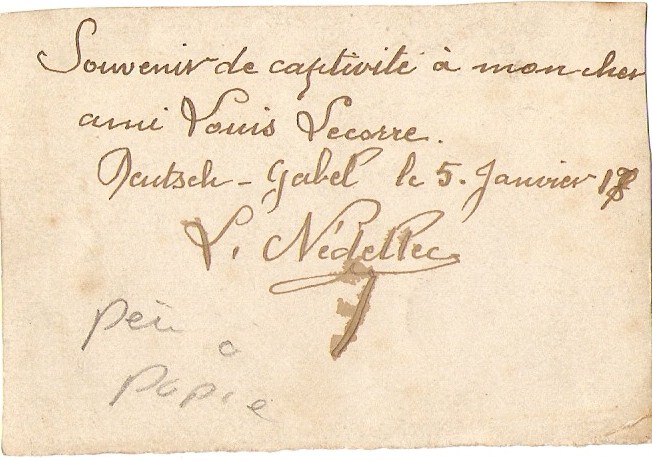 Souvenir de captivité à mon cher
ami Louis Lecorre.
Deutsch-Gabel le 5. Janvier 18
L. Nédellec
à
papie